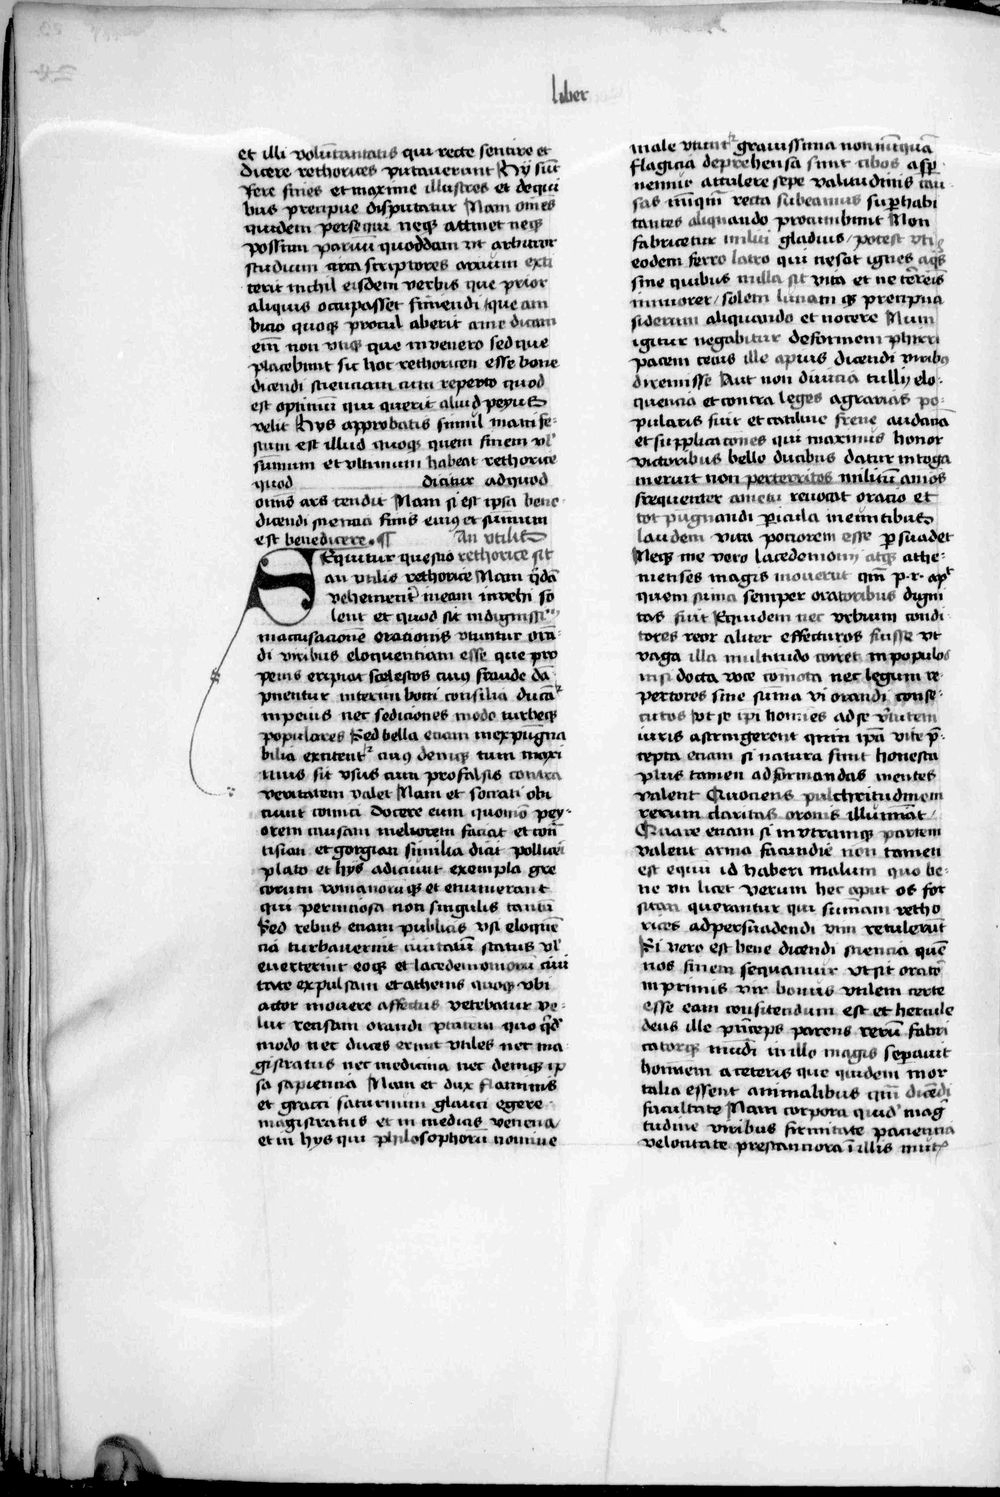 liber
et illi voluntatis qui recte sentire et
dicere rethorices putaverunt Hij sūt
fere fines et maxime illustres et de qui
bus precipue disputatur Nam omēs
quidem persequi neqꝫ attinet neqꝫ
possum parvū quoddam ut arbitror
studium circa scriptores artium exti
terit nichil eisdem verbis que prior
aliquis occupasset finiendi que am
bicio quoqꝫ procul aberit a me dicam
em̄ non utiqꝫ que invenero sed que
placebunt sic hoc rethoricen esse bene
dicendi scienciam cum reperto quod
est optimū qui querit aliud peyus
velit Hys approbatis simul manife-
stum est illud quoqꝫ quem finem vl'
sūmum et ultimum habeat rethorice
quod dicitur ad quod
omīs ars tendit Nam si est ipsa bene
dicendi sciencia finis eiꝰ et sūmum
est benedicere . ¶ An utilis
SEquitur questio rethorice sit
an utilis rethorice Nam q̄dā
vehementer̄ in eam invehi so
lent et quod sit indignissi
in accusacionē orationis utuntur orā-
di viribus eloquentiam esse que pro
penis eripiat scelestos cuiꝰ fraude dā-
pnentur interim boni consilia ducātʳ
in peius nec sediciones modo turbeqꝫ
populares Sed bella eciam inexpugna
bilia excitentʳ cuiꝰ deniqꝫ tum maxi
mus sit usus cum pro falsis contra
veritatem valet Nam et socrati obi
ciunt comici docere eum quomō pey-
orem causam meliorem faciat et con̄
tisiam et gorgian similia dicit polliceri
plato et hys adiciunt exempla gre
corum romanorūqꝫ et enumerant
qui perniciosa non singulis tantū
Sed rebus eciam publicis usi eloquē
cia turbaverint civitatū status vl'
everterint eoqꝫ et lacedemoniorū civi
tate expulsam et athenis quoqꝫ ubi
actor movere affectus vetebatur ve-
lut recisam orandi ptātem quo q̄d'
modo nec duces erunt utiles nec ma
gistratus nec medicina nec deniqꝫ ip
sa sapiencia Nam et dux flaminis
et gracci saturninum glauci egere
magistratus et in medicis venena
et in hys qui philosophorū nomine
male utuntʳ gravissima non nūquā
flagicia deprehensa sunt cibos asp̄-
nemur attulere sepe valitudinis cau-
sas nūqm̄ recta subeamus sup̄ habi
tantes aliquando procumbunt Non
fabricetur militi gladius / potest uti
eodem ferro latro qui nescit ignes aq̄s
sine quibus nulla sit vita et ne terrēis
inmorer / solem lunam qꝫ precipua
siderum aliquando et nocere Num
igitur negabitur deformem phirri
pacem cecus ille apius dicendi viribꝰ
diremisse Aut non divina tullij elo-
quencia et contra leges agrarias po-
pularis fuit et catiline frene audaciā
et supplicacones qui maximus honor
victoribus bello ducibus datur in toga
meruit non perterritos militū aīmos
frequenter a metu revocat oracio et
tot pugnandi p̄icula ineuntibus
laudem vita pociorem esse p̄suadet
Neqꝫ me vero lacedemonij atqꝫ athe-
nienses magis moverint qm̄ p. r. apt'
quem sūma semper oratoribus digni
tas fuit Equidem nec urbium condi
tores reor aliter effecturos fuisse ut
vaga illa multitudo coiret in populos
nisi docta voce comota nec legum re-
pertores sine sūma vi orandi conse-
cutos ut se ip̄i homies ad se v̄itutem
iuris astringerent quin ip̄a vite p̄-
cepta eciam si natura sunt honesta
plus tamen ad formandas mentes
valent Quociens pulchritudinem
rerum claritas oronis illumīat /
Quare eciam si in utramqꝫ partem
valent arma facundie non tamen
est equū id haberi malum quo be-
ne uti licet Verum hec aput os for
sitan querantur qui sūmam retho
rices ad persuadendi vim retulerūt
Si vero est bene dicendi sciencia quē
nos finem sequamur ut sit oratō
inprimis vir bonus utilem certe
esse eam confitendum est et hercule
deus ille p̄nceps parens rerū fabri
catorqꝫ mūdi nullo magis separavit
hominem a ceteris que quidem mor
talia essent animalibus qm̄ dicēdi
facultate Nam corpora quid' mag̅
tudine viribus firmitate paciencia
velocitate prestanciora ī illis mut'